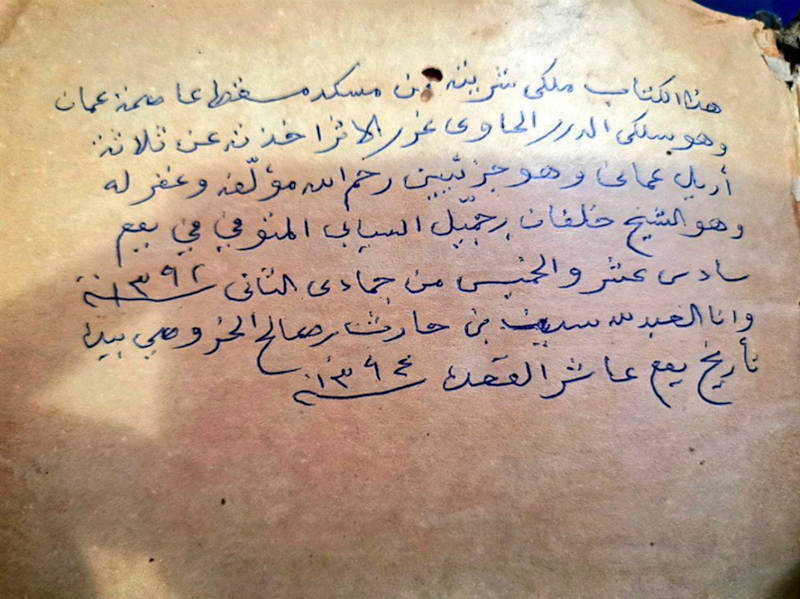 هذا الكتاب ملكي شريته من مسكد مسقط عاصمة عمان
وهو سلك الدرر الحاوي غرر الاثر اخذته عن ثلاثة
أريل عماني وهو جزئيين رحم الله مؤلفه وغفر له
وهو الشيخ خلفان بن جميّل السيابي المتوفي في يوم
سادس عشر والخميس من جمادى الثاني سنة ١٣٩٢
وانا العبد لله سيف بن حارث بن صالح الخروصي بيده
تأريخ يوم عاشر القعده سنة ١٣٩٢